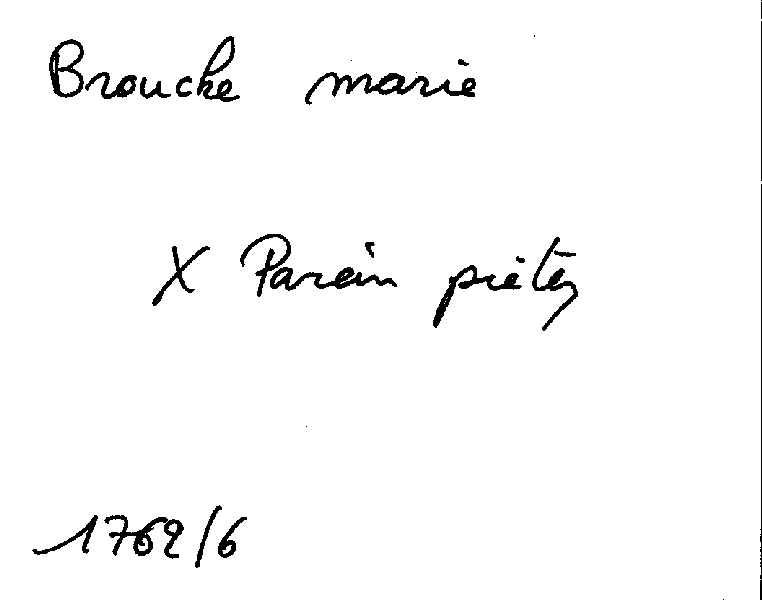 Brouche marie
X Parein piéter
1762/6